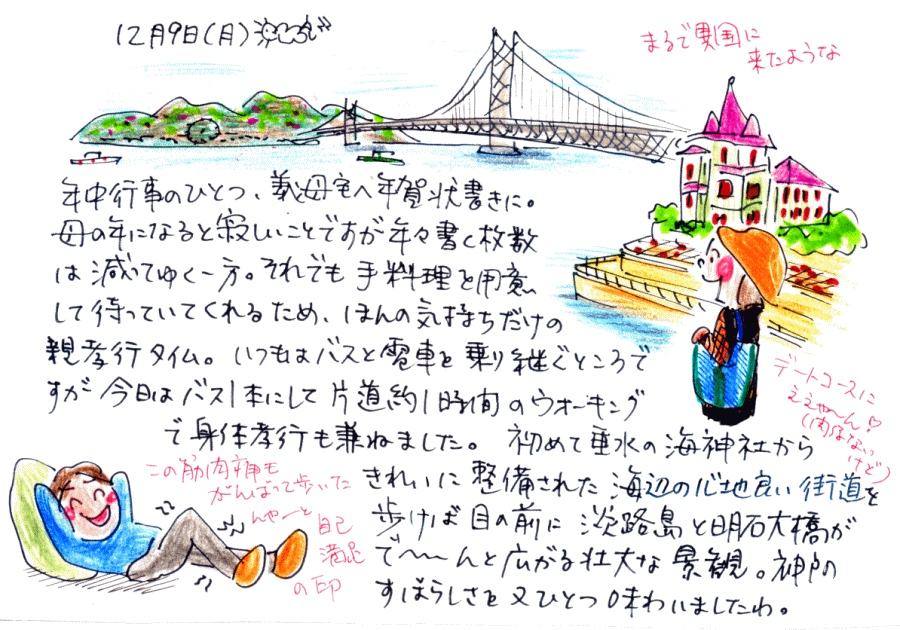 12月9日(月)
まるで異国に
来たような
年中行事のひとつ、義母宅へ年賀状書きに。
母の年になると寂しいことですが年々書く枚数
は減ってゆく一方。それでも手料理を用意
して待っていてくれるため、ほんの気持ちだけの
親孝行タイム。いつもはバスと電車を乗り継ぐところで
すが今日はバス1本にして片道約1時間のウオーキング
で身体孝行も兼ねました。初めて垂水の海神社から
きれいに整備された海辺の心地良い街道を
歩けば目の前に淡路島と明石大橋が
で〜〜んと広がる壮大な景観。神戸の
すばらしさを又ひとつ味わいましたわ。
デートコースに
ええや〜ん♡
けど)
この筋肉痛も
がんばって歩いた
んや〜と
自己
満足
の印